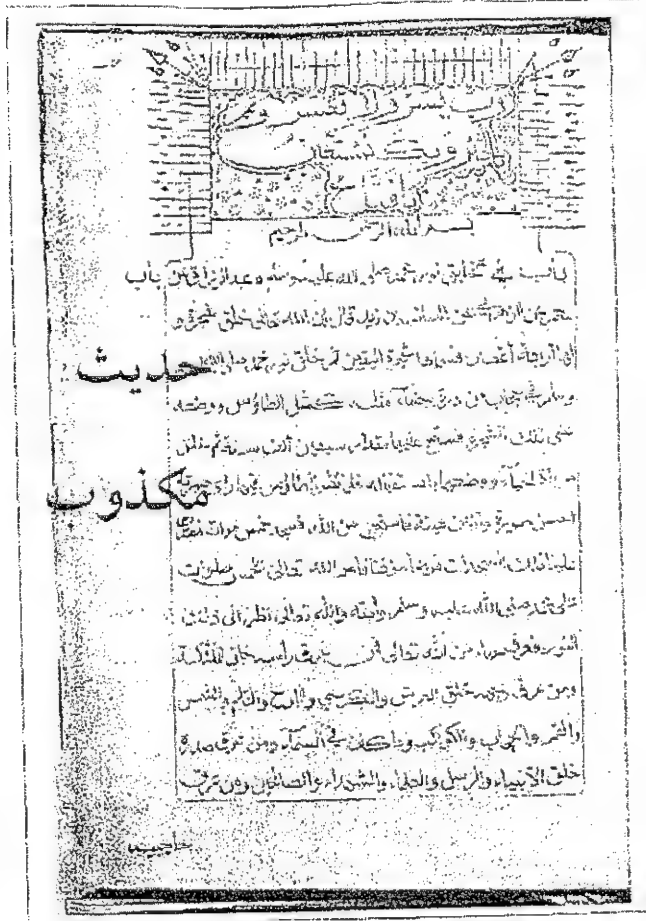 رب يسر ولا تعسر وتمم
بالخير وبك نستعين
يا فتاح
بسم الله الرحمن الرحيم
باب في تخليق نور محمد صلى الله عليه وسلم عبد الرزاق عن
معمر عن الزهري عن السائب بن زيد قال إن الله تعالى خلق شجرة و
لها أربعة أغصان فسماها شجرة اليقين ثم خلق نور محمد صلى الله عليه
وسلم في حجاب من درة بيضاء مثله كمثل الطاؤس ووضعه
على تلك الشجرة فسبح عليها مقدار سبعين ألف سنة ثم خلق
مرآة الحياء ووضعها باستقباله فلما نظر الطاؤس فيها رأى صورته
أحسن صورة وأزين هيئة فاستحى من الله فسجد خمس مرات فصارت
علينا تلك السجدات فرضا مؤقتا فأمر الله تعالى بخمس صلوات
على محمد صلى الله عليه وسلم وأمته والله تعالى نظر إلى ذلك
النور فعرق حياء من الله تعالى فمن عرق رأسه خلق الملئكة
ومن عرق وجهه خلق العرش والكرسي واللوح والقلم والشمس
والقمر والحجاب والكواكب وما كان في السماء ومن عرق صدره
خلق الأنبياء والرسل والعلماء والشهداء والصالحين ومن عرق
حاجبيه
حديث
مكذوب